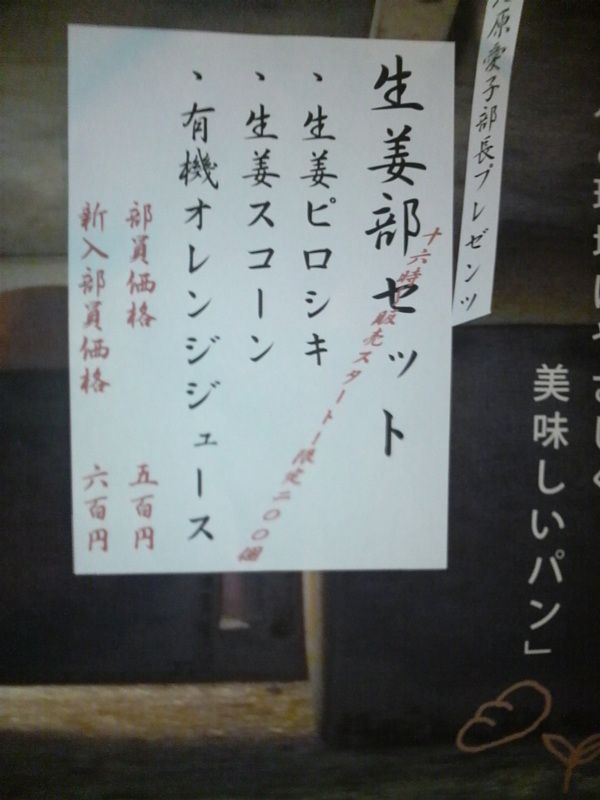 原愛子部長プレゼンツ
生姜部セット
十六時販売スタート！限定二〇〇個
、生姜ピロシキ
、生姜スコーン
、有機オレンジジュース
部員価格 五百円
新入部員価格 六百円
やさしく
美味しいパン」